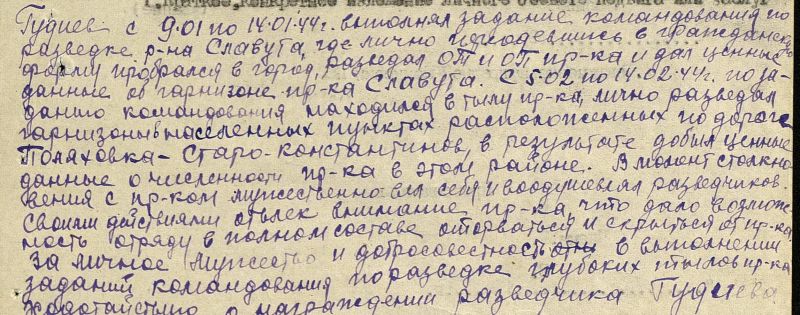 1. Краткое, конкретное изложение личного боевого подвига или заслуг
Гудиев с 9.01 по 14.01.44г. выполнял задание командования по
разведке р-на Славута, где лично переодевшись в гражданскую
форму пробрался в город, разведал ОТ и ОП пр-ка и дал ценные
данные о гарнизоне пр-ка Славута. С 5.02 по 14.02.44г. по за-
данию командования находился в тылу пр-ка, лично разведал
гарнизоны в населенных пунктах расположенных по дороге
Поляховка - Старо-константинов, в результате добыл ценные
данные о численности пр-ка в этом районе. В момент столкно-
вения с пр-ком мужественно вел себя и воодушевлял разведчиков.
Своими действиями отвлек внимание пр-ка что дало возмож-
ность отряду в полном составе оторваться и скрыться от пр-ка
За личное мужество и добросовестность в выполнении
заданий командования по разведке глубоких тылов пр-ка
ходатайствую о награждении разведчика Гудиева